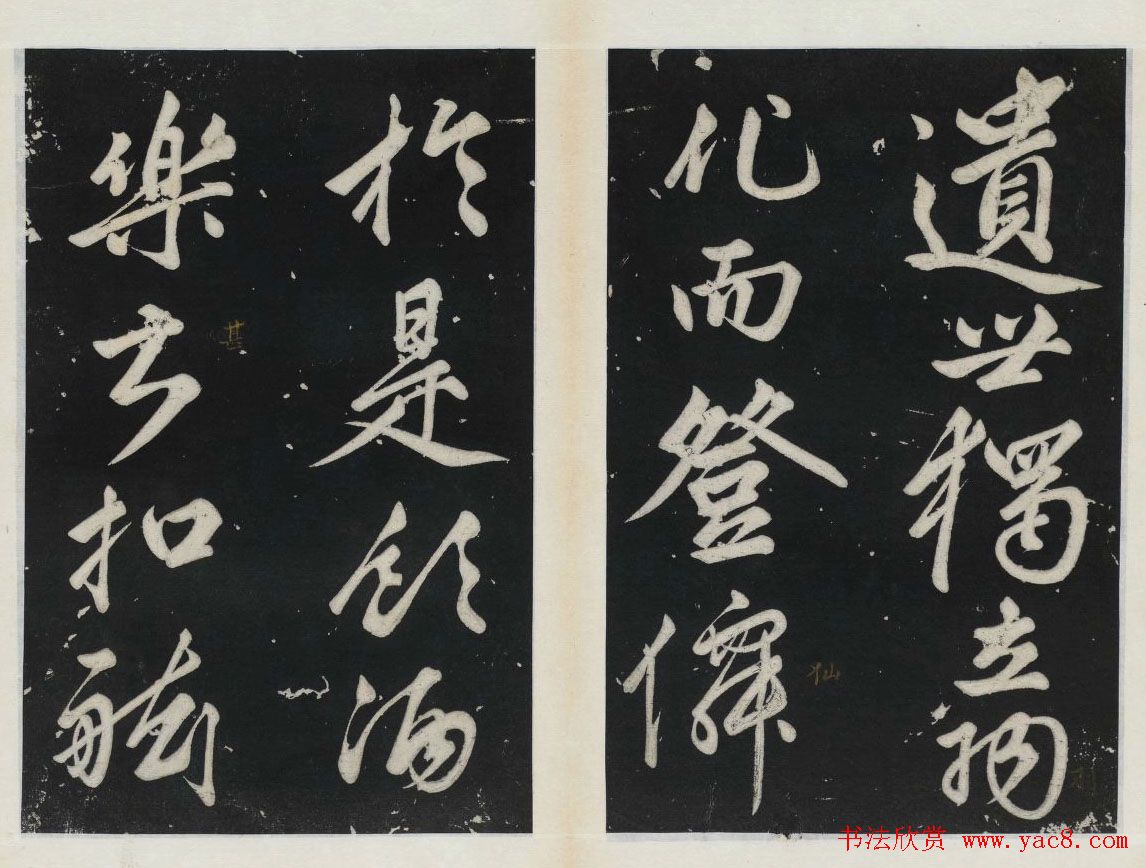 遺世獨立羽
化而登僊
仙
於是飲酒
樂甚扣舷
甚
书法欣赏 www.yac8.com